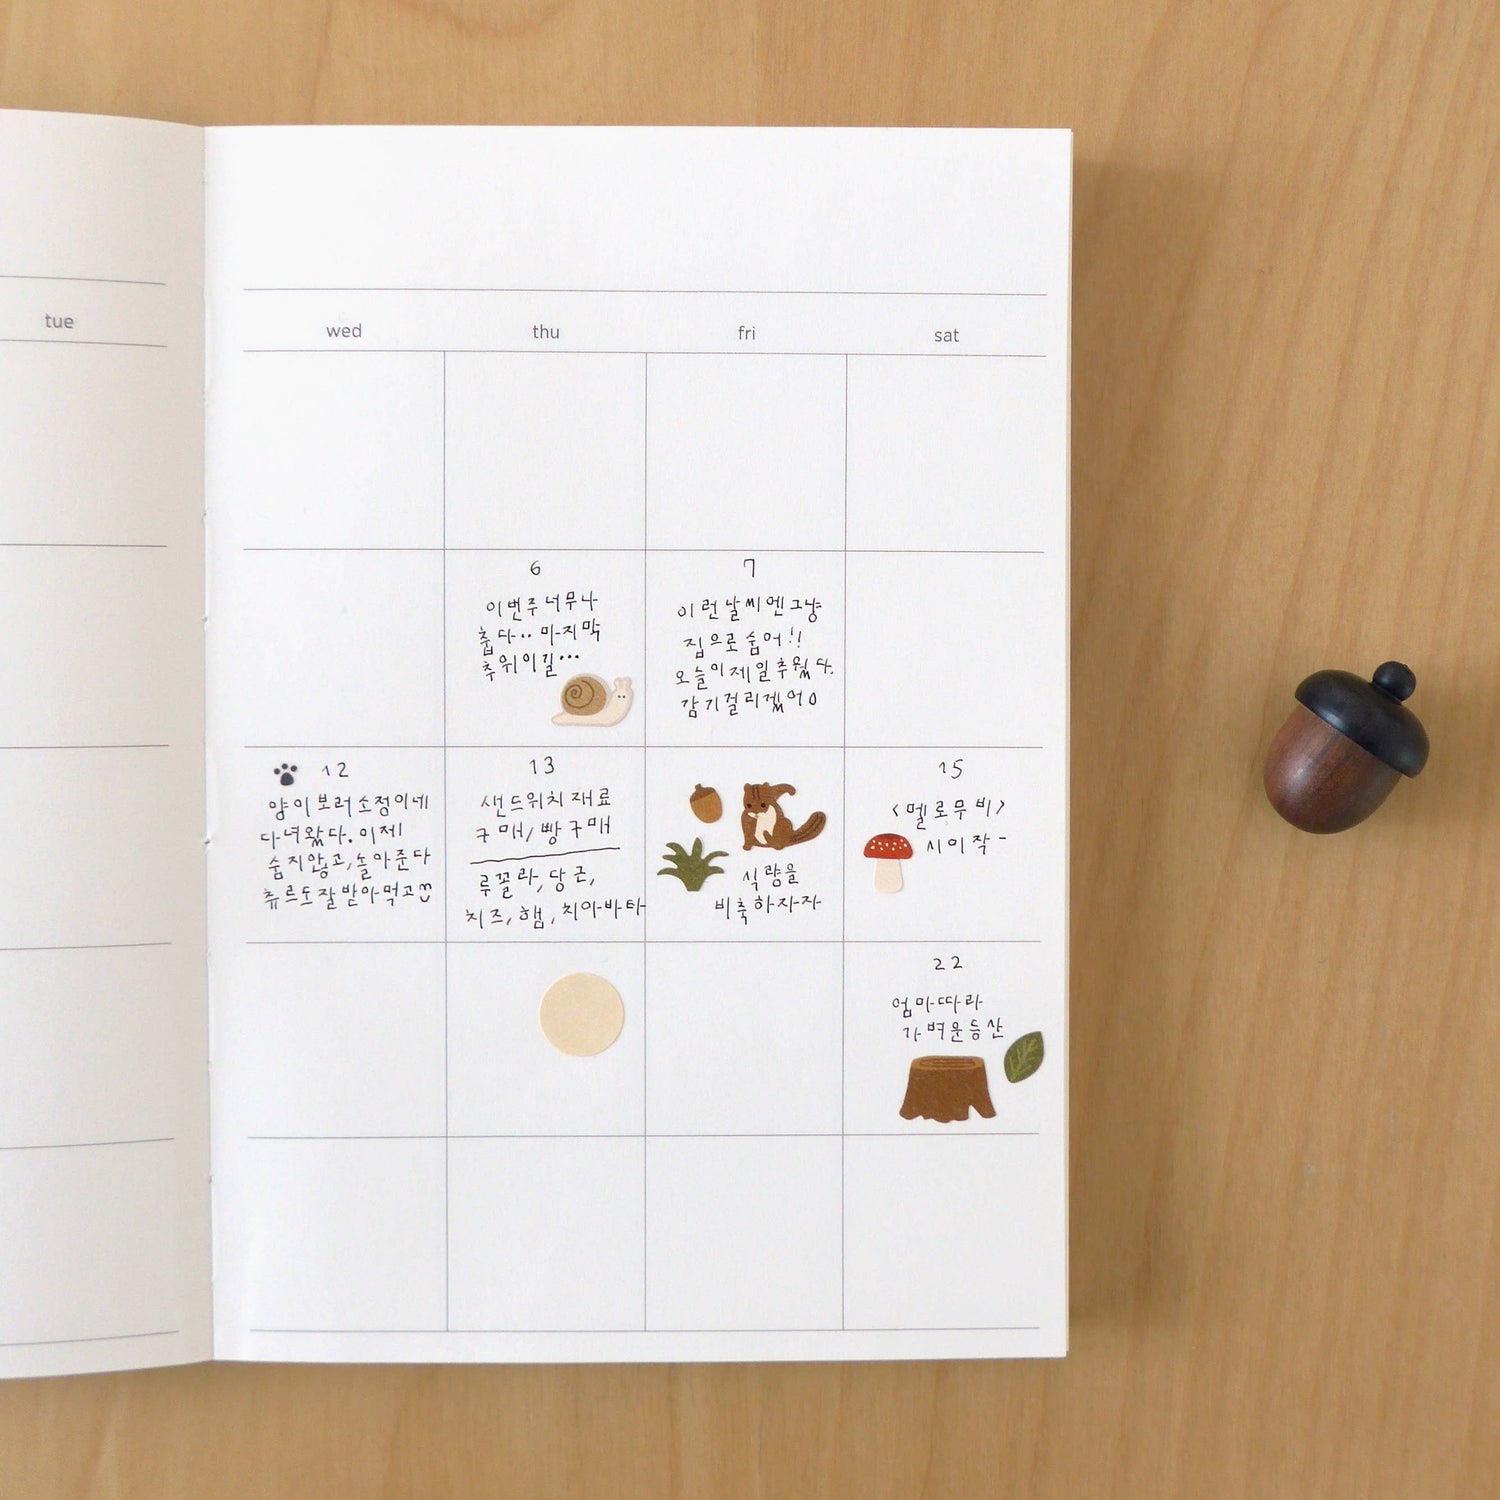 tue
wed thu fri sat
6
이번주 너무나
춥다.. 마지막
추위이길...
7
이런 날씨엔 그냥
집으로 숨어!!
오늘이 제일 추웠다.
감기걸리겠어
12
양이 보러 소정이네
다녀왔다. 이제
숨지않고, 놀아준다
츄르도 잘 받아먹고
13
샌드위치 재료
구매/빵 구매
루꼴라, 당근,
치즈, 햄, 치아바타
식량을
비축하자자
15
<멜로무비>
시이작-
22
엄마따라
가벼운 등산